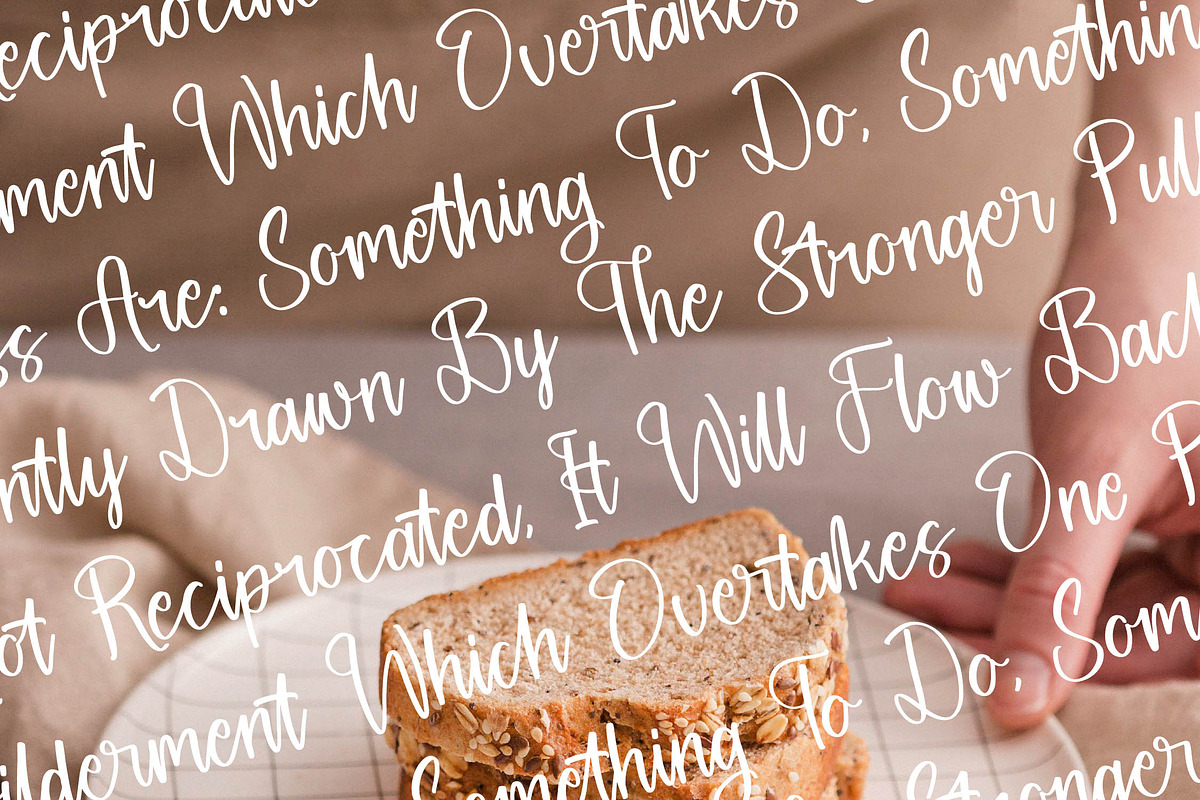 Reciprocated
ment Which Overtakes
ss Are: Something To Do, Something
ntly Drawn By The Stronger Pull
ot Reciprocated, It Will Flow Back
ilderment Which Overtakes One P
Something To Do, Som
Stronger